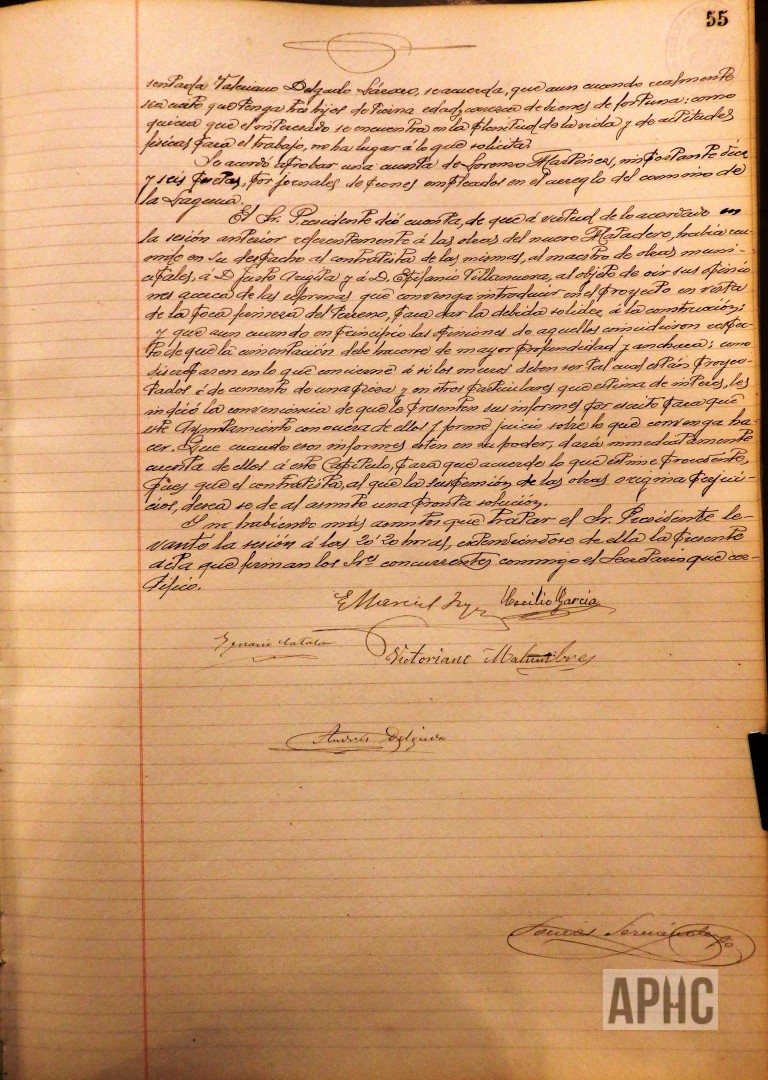 55
sentada Valeriano Delgado Lázaro, se acuerda, que aun cuando realmente
sea cierto que tenga tres hijos de tierna edad y carezca de bienes de fortuna; como
quiera que el interesado se encuentra en la plenitud de la vida y de aptitudes
físicas para el trabajo, no ha lugar á lo que solicita.
Se acordó aprobar una cuenta de Lorenzo Martínez, importante diez
y seis pesetas, por jornales de peones empleados en el arreglo del camino de
la Laguna.
El Sr. Presidente dió cuenta, de que á virtud de lo acordado en
la sesión anterior referentemente á las obras del nuevo Matadero, había reu-
nido en su despacho al contratista de las mismas, al maestro de obras muni-
cipales, á D. Justo y á D. Epifanio Villanueva, al objeto de oir sus opinio
nes acerca de las reformas que convenga introducir en el proyecto en vista
de la poca firmeza del terreno, para dar la debida solidez á la construcción;
y que aun cuando en principio las opiniones de aquellos coincidieron respec-
to de que la cimentación debe hacerse de mayor profundidad y anchura; como
discrepasen en lo que concierne á si los muros deben ser tal cual están proyec-
tados ó de cemento de una pieza y en otros particulares que estima de interes, les
indicó la conveniencia de que le presenten sus informes por escrito para que
este Ayuntamiento conociera de ellos y forme juicio sobre lo que convenga ha-
cer. Que cuando esos informes esten en su poder, dará inmediatamente
cuenta de ellos á este Capítulo, para que acuerde lo que estime procedente,
pues que el contratista, al que la suspensión de las obras origina perjui-
cios, desea se dé al asunto una pronta solución.
Y no habiendo más asuntos que tratar el Sr. Presidente le-
vantó la sesión á las 20'20 horas, extendiéndose de ella la presente
acta que firman los Sres concurrentes conmigo el Secretario que cer-
tifico.
E Marcial Cecilio García
Victoriano
Andrés Delgado
APHC